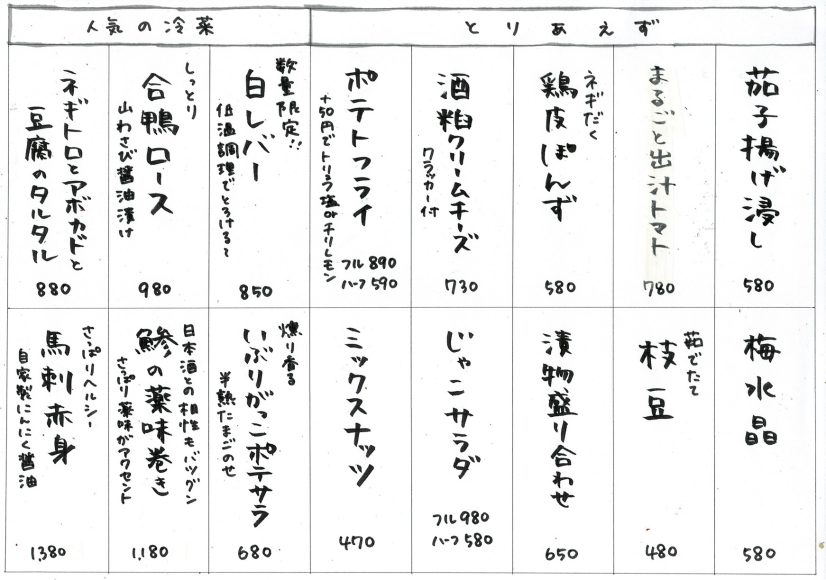 とりあえず
茄子揚げ浸し
580
まるごと出汁トマト
780
ネギだく
鶏皮ぽんず
580
酒粕クリームチーズ
クラッカー付
730
ポテトフライ
+50円でトリュフ塩orチリレモン
フル 890
ハーフ 590
梅水晶
580
茹でたて
枝豆
480
漬物盛り合わせ
650
じゃこサラダ
フル 980
ハーフ 580
ミックスナッツ
470
人気の冷菜
数量限定!!
白レバー
低温調理でとろけるて
850
しっとり
合鴨ロース
山わさび醤油漬け
980
ネギトロとアボカドと
豆腐のタルタル
880
燻り香る
いぶりがっこポテサラ
半熟たまごのせ
680
日本酒との相性もバツグン
鯵の薬味巻き
さっぱり薬味がアクセント
1,180
さっぱりヘルシー
馬刺赤身
自家製にんにく醤油
1,380